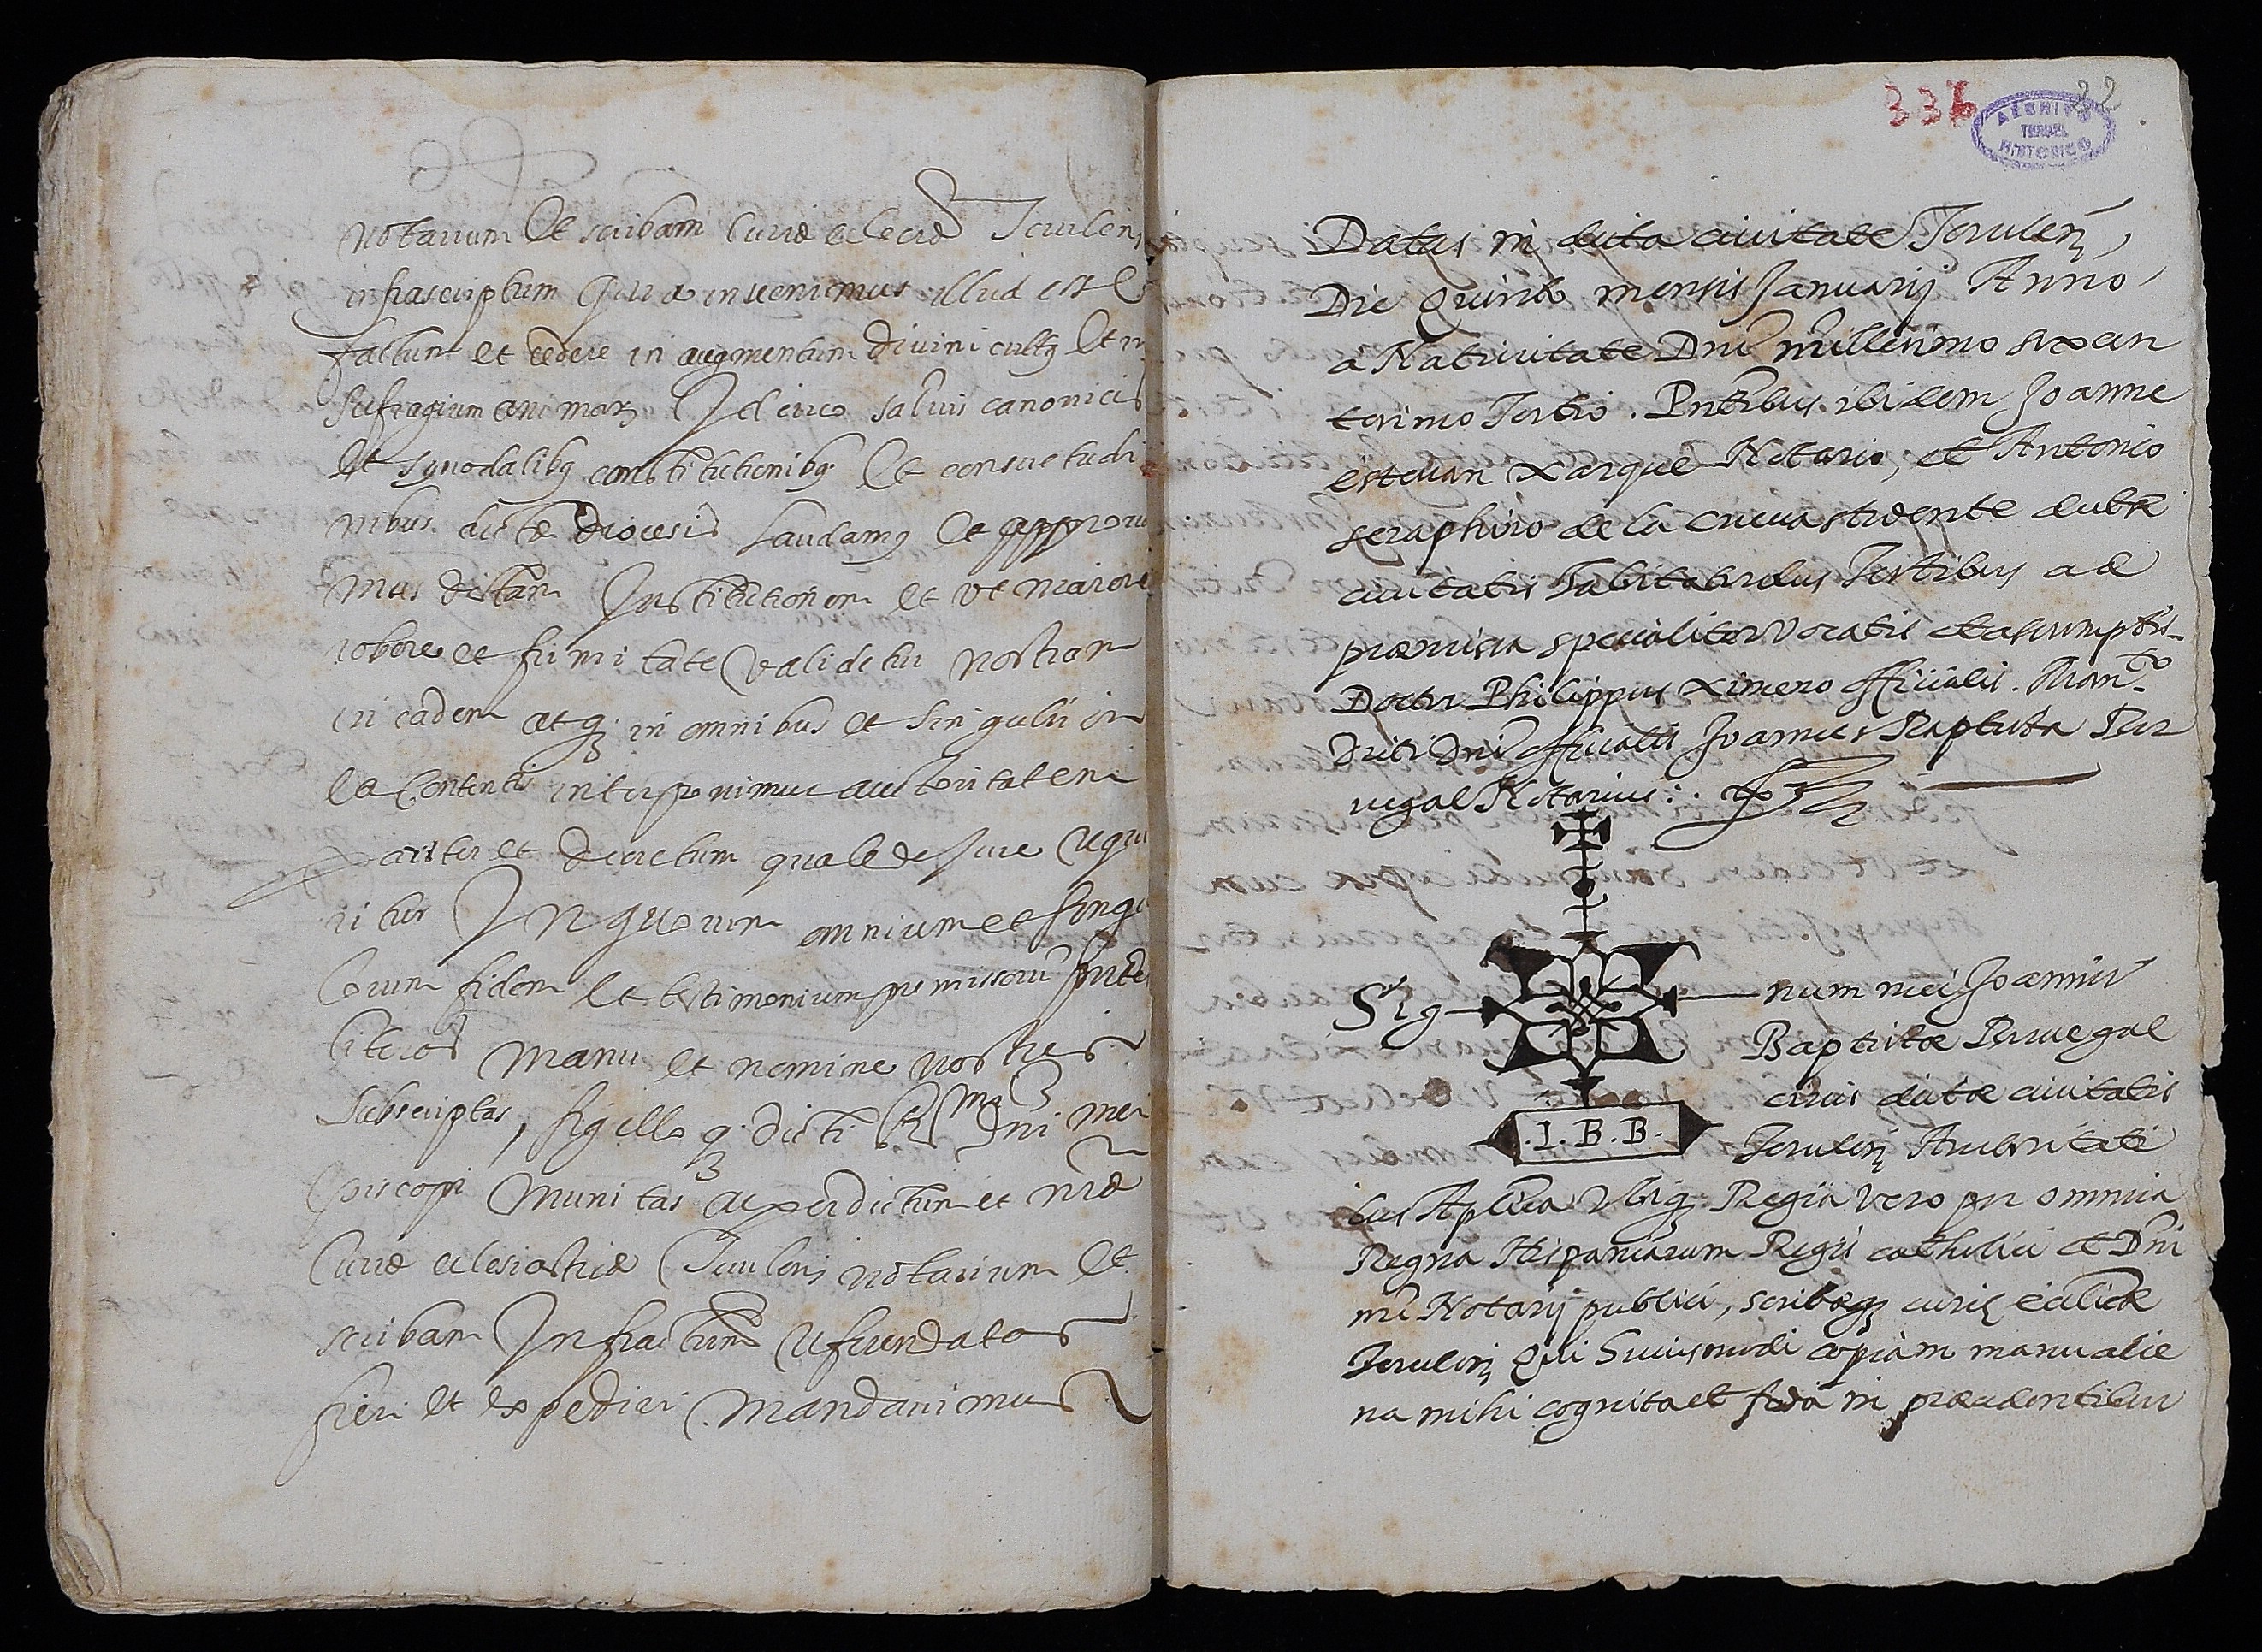 notarium et scribam Curiæ eclecæ Terulen̄
infrascriptum Quia invenimus illud esse
factum et cedere in augmentum divini cultꝰ et in
sufragium animarꝝ Idcirco salvis canonicis
et synodalibꝰ constitutionibꝰ et consuetudi
nibus dictæ diocesis laudamꝰ et approva
mus dictam Institutionem et ut maiore
robore et firmitate validetur nostram
in eadem atqꝫ in omnibus et singulis in
ea contentis interponimus auctoritatem
pariter et decretum quale de jure requi
ritur In quorum omnium et singu
lorum fidem et testimonium premissorū pn̄tes
literas manu et nomine nostris
subscriptas, sigilloqꝫ dicti R.mi Dn̄i mei
episcopi munitas ac per dictum et nr̄æ
Curiæ eclesiasticæ Terulen̄ notarium et
scribam Infractum referendatas
fieri et expediri mandavimus
336 22
ARCHIVO
TERUEL
HISTORICO
Datas in dicta civitate Terulen̄,
Die Quinto mensis Januarij Anno
a Nativitate Dnī millesimo sexcen
tesimo Tertio. Pn̄tibus ibidem Joanne
estevan xarque Notario, et Antonio
seraphino de la cueva studente dictæ
civitatis habitatoribus Testibus ad
præmissa specialiter vocatis et asumptis.
Doctor Philippus ximeno officialis. Man.to
Dicti Dnī officialis Joannes Baptista Bru
negal Notarius:.
Sig num mei Joannis
Baptistæ Brunegal
civis dictæ civitatis
.I.B.B.
Terulen̄ Auctoritati
bus Aplīca Vbiqꝫ Regia vero per omnia
Regna Hispaniarum Regis catholici et Dnī
nrī Notarij publici, scribæqꝫ curiæ ecclīcæ
Terulen̄ Qui Huiusmodi copiam manu alie
na mihi cognita et fida in præcedentibus